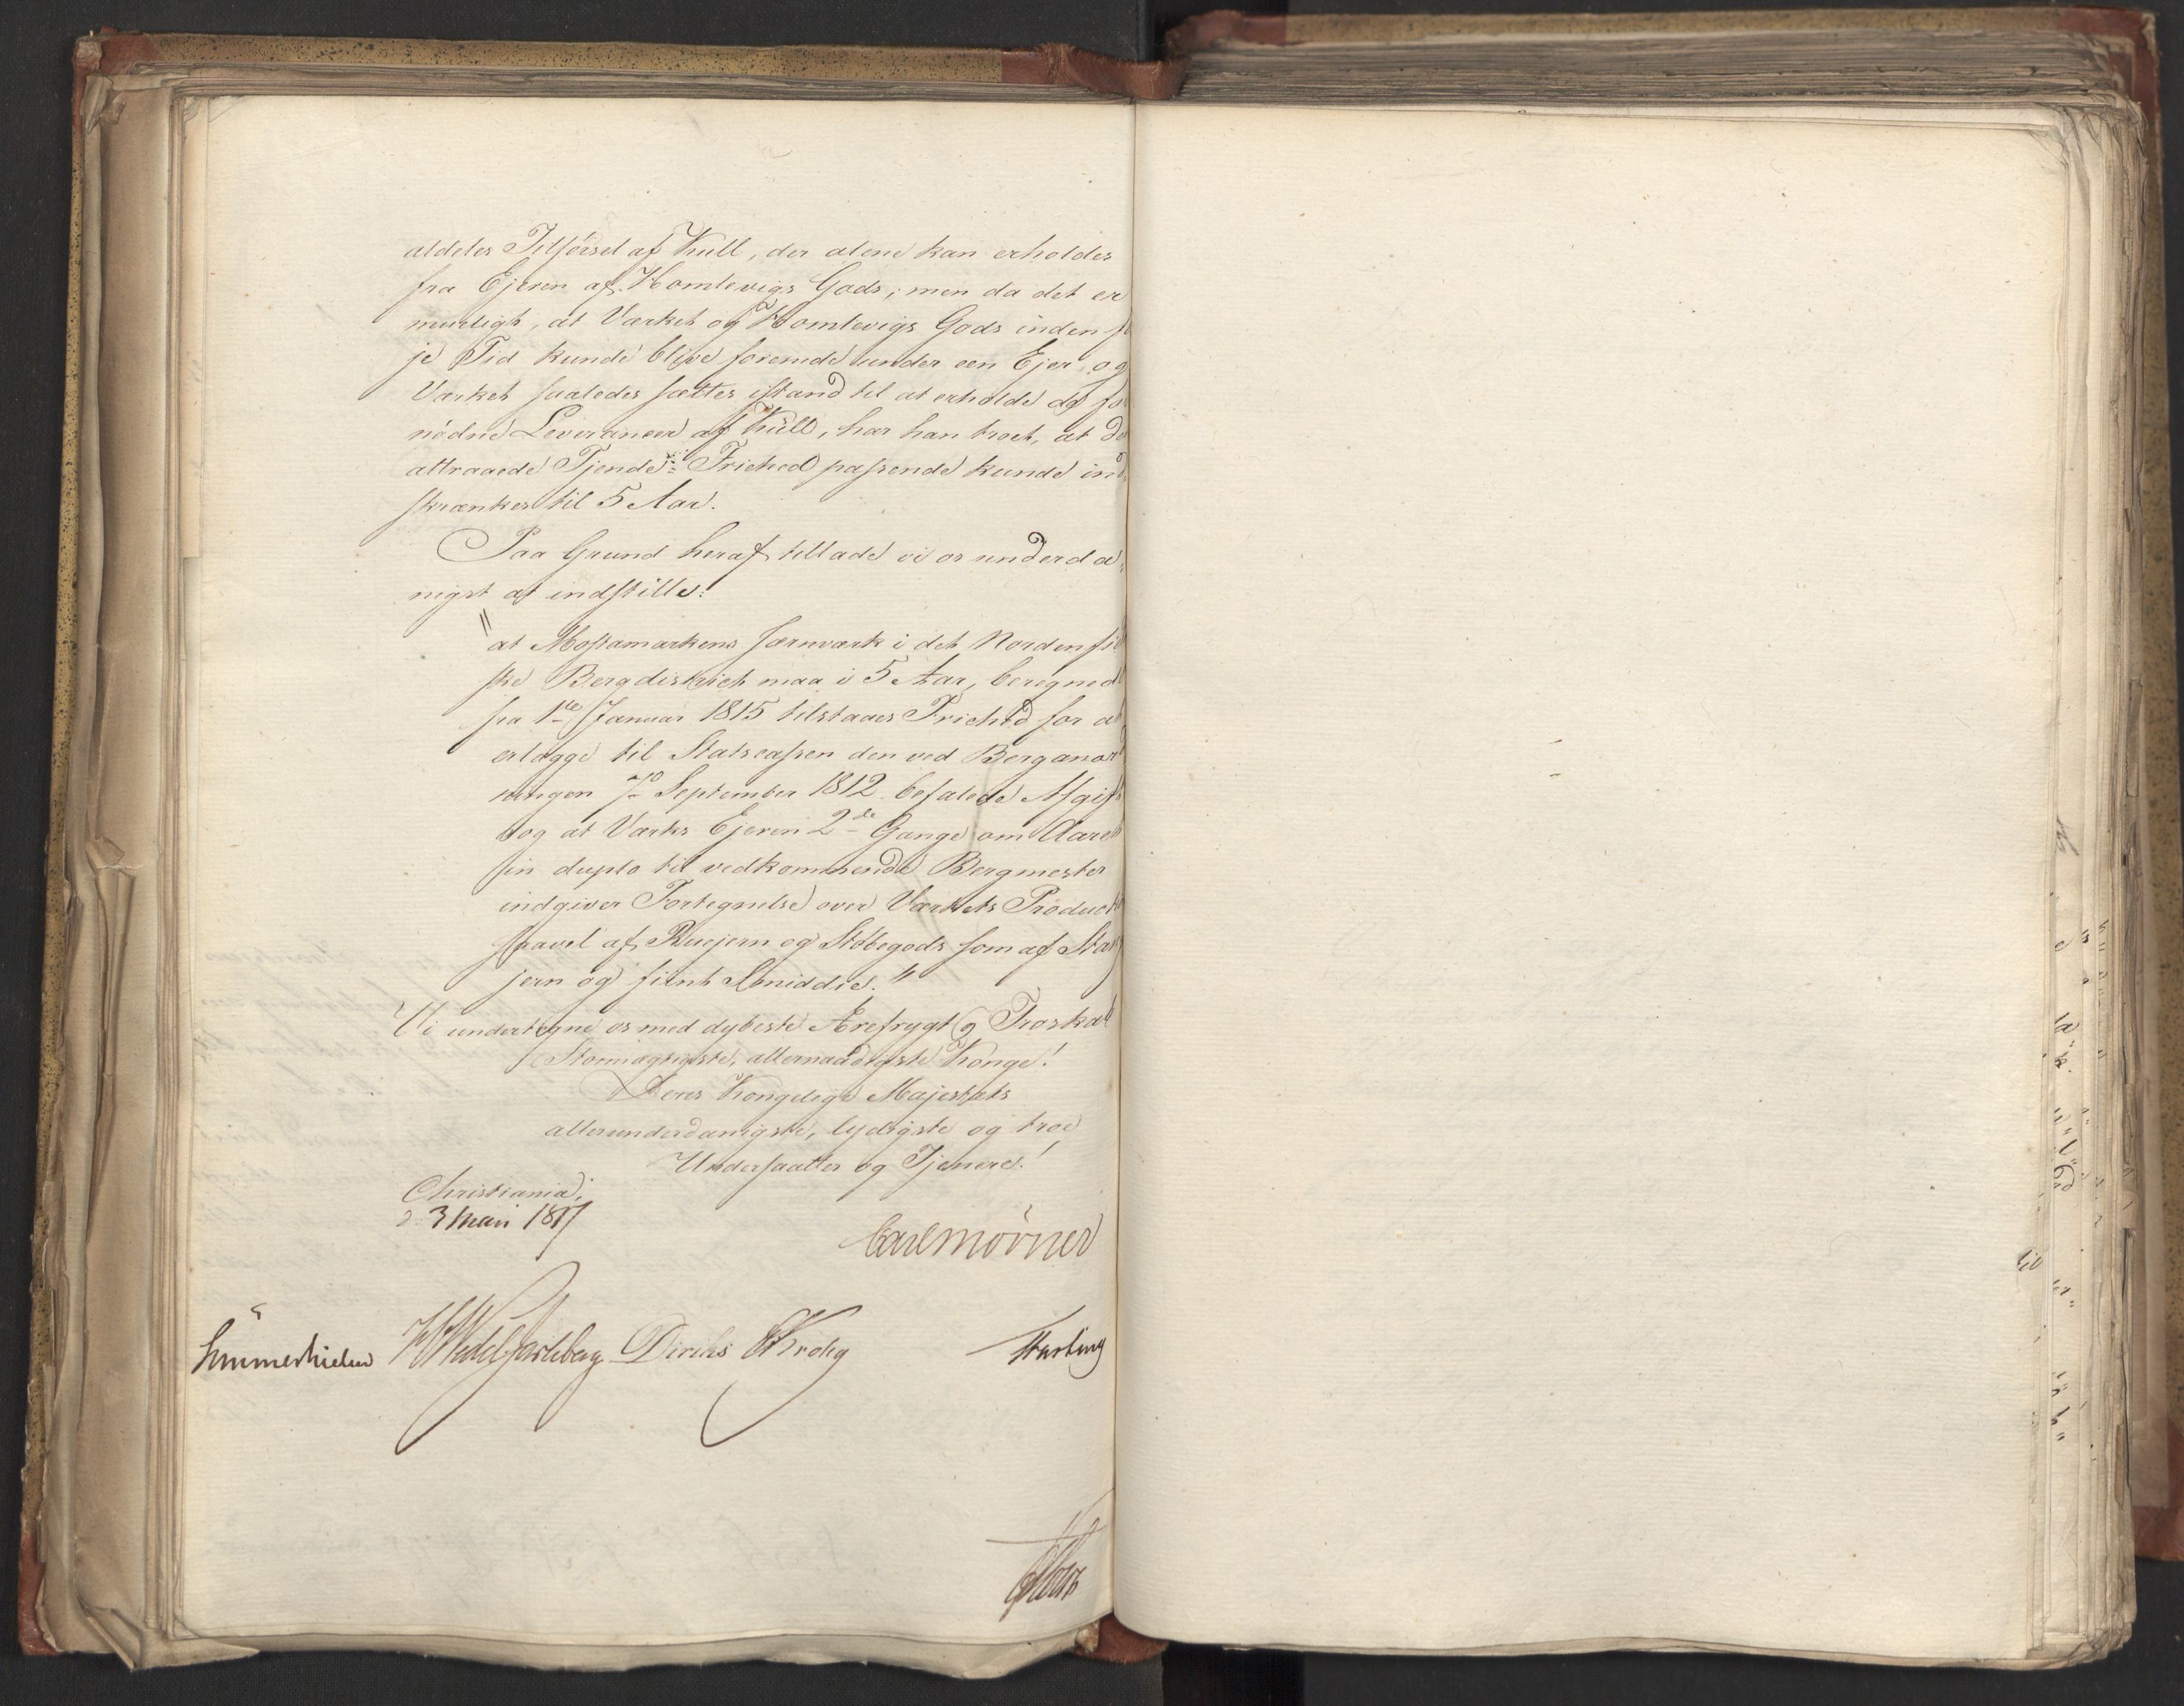 aldeles Tilførsel af Kull, der alene kan erholdes
fra Ejeren af Homlevigs Gods; men da det er
mueligt, at Værket og Homlevigs Gods inden fø
je Tid kunde blive forenede under een Ejer og
Værket saaledes sættes istand til at erholde de for
nødne Leverancer af Kull, har han troet, at de
attraaede Tjende-Frihed passende kunde ind
skrænkes til 5 Aar.
Paa Grund heraf tillade vi os underda
nigst at indstille:
"at Mostamarkens Jernværk i det Nordenfjel
ske Bergdistrict maa i 5 Aar, beregned
fra 1te Januar 1815 tilstaaes Friehed for at
erlægge til Statscassen den ved Berganord
ningen 7de September 1812 befalede Afgift
og at Værks Ejeren 2de Gange om Aaret
in duplo til vedkommende Bergmester
indgiver Fortegnelse over Værkets Product
saavel af Ruejern og Støbegods som af Stang
jern og fiint Smiddie."
Vi undertegne os med dybeste Ærefrygt og Troskab
Stormægtigste, allernaadigste Konge!
Deres Kongelige Majestæts
allerunderdanigste, lydigste og troe
Undersaatter og Tjenere!
Christiania,
d. 3 Mai 1817
Carl Mörner
Sommerhielm HWedel Jarlsberg Diriks Krohg Harbing